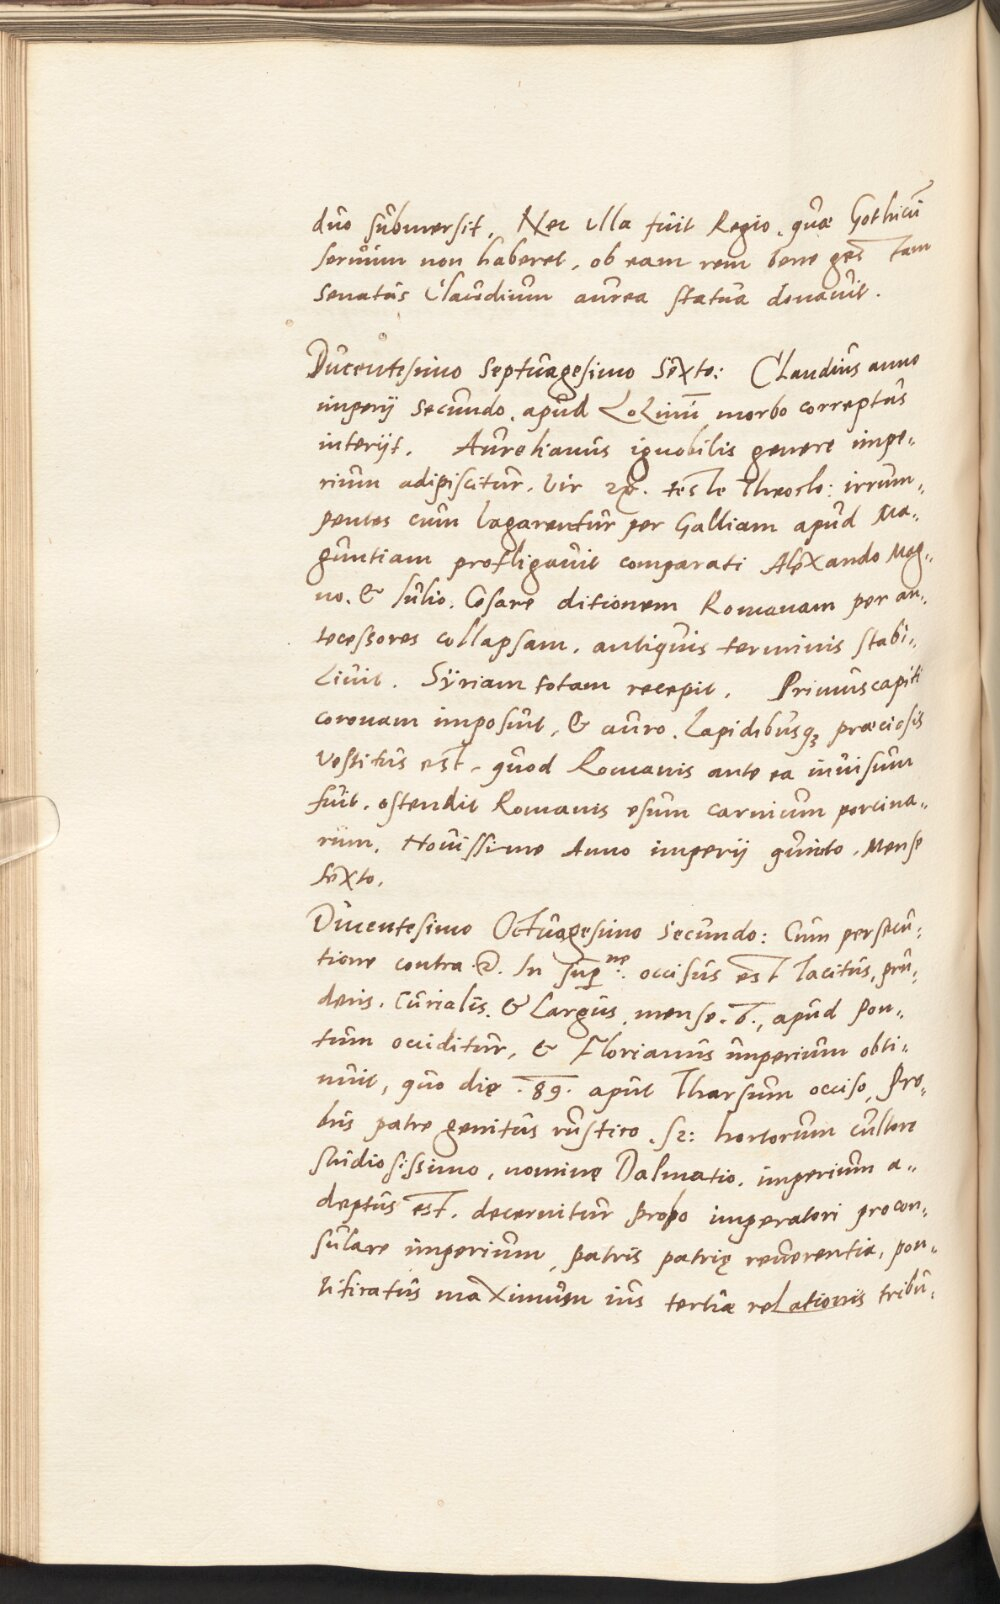 duo submersit. Nec ulla fuit Regio, quæ Gothicū
servum non haberet, ob eam rem bene ges tam
senatus Claudium aurea statua donavit.
Ducentesimo septuagesimo Sexto: Claudius anno
imperij secundo, apud morbo correptus
interijt. Aurelianus ignobilis genere impe-
rium adipiscitur. Vir teste Theoclo: irrum-
pentes cum lagarentur per Galliam apud Ma-
guntiam profligavit comparati Alexando Mag-
no, & Iulio. Cesare ditionem Romanam per an-
tecessores collapsam, antiquis terminis stabi-
livit. Sÿriam totam recepit. Primus capiti
coronam imposuit, & auro, Lapidibusqꝫ præciosis
vestitus est, quod Romanis ante ea invisum
fuit. ostendit Romanis esum carnium porcina-
rum. Novissime Anno imperij quinto, Mense
sexto.
Ducentesimo Octuagesimo secundo: Cum persecu-
tione contra In sup.ne. occisus est Tacitus, pru-
dens, Curialis, & Largus, mense. 6., apud Pon-
tum occiditur, & Florianus imperium obti-
nuit, quo die .89. aput Tharsum occiso, Pro-
bus patre genitus rustico, sz: hortorum cultore
studiosissimo, nomine Dalmatio, imperium a-
deptus est. decernitur Probo imperatori procon-
sulare imperium, patris patrię reverentia, pon-
tificatus maximum ius tertiæ relationis tribu-